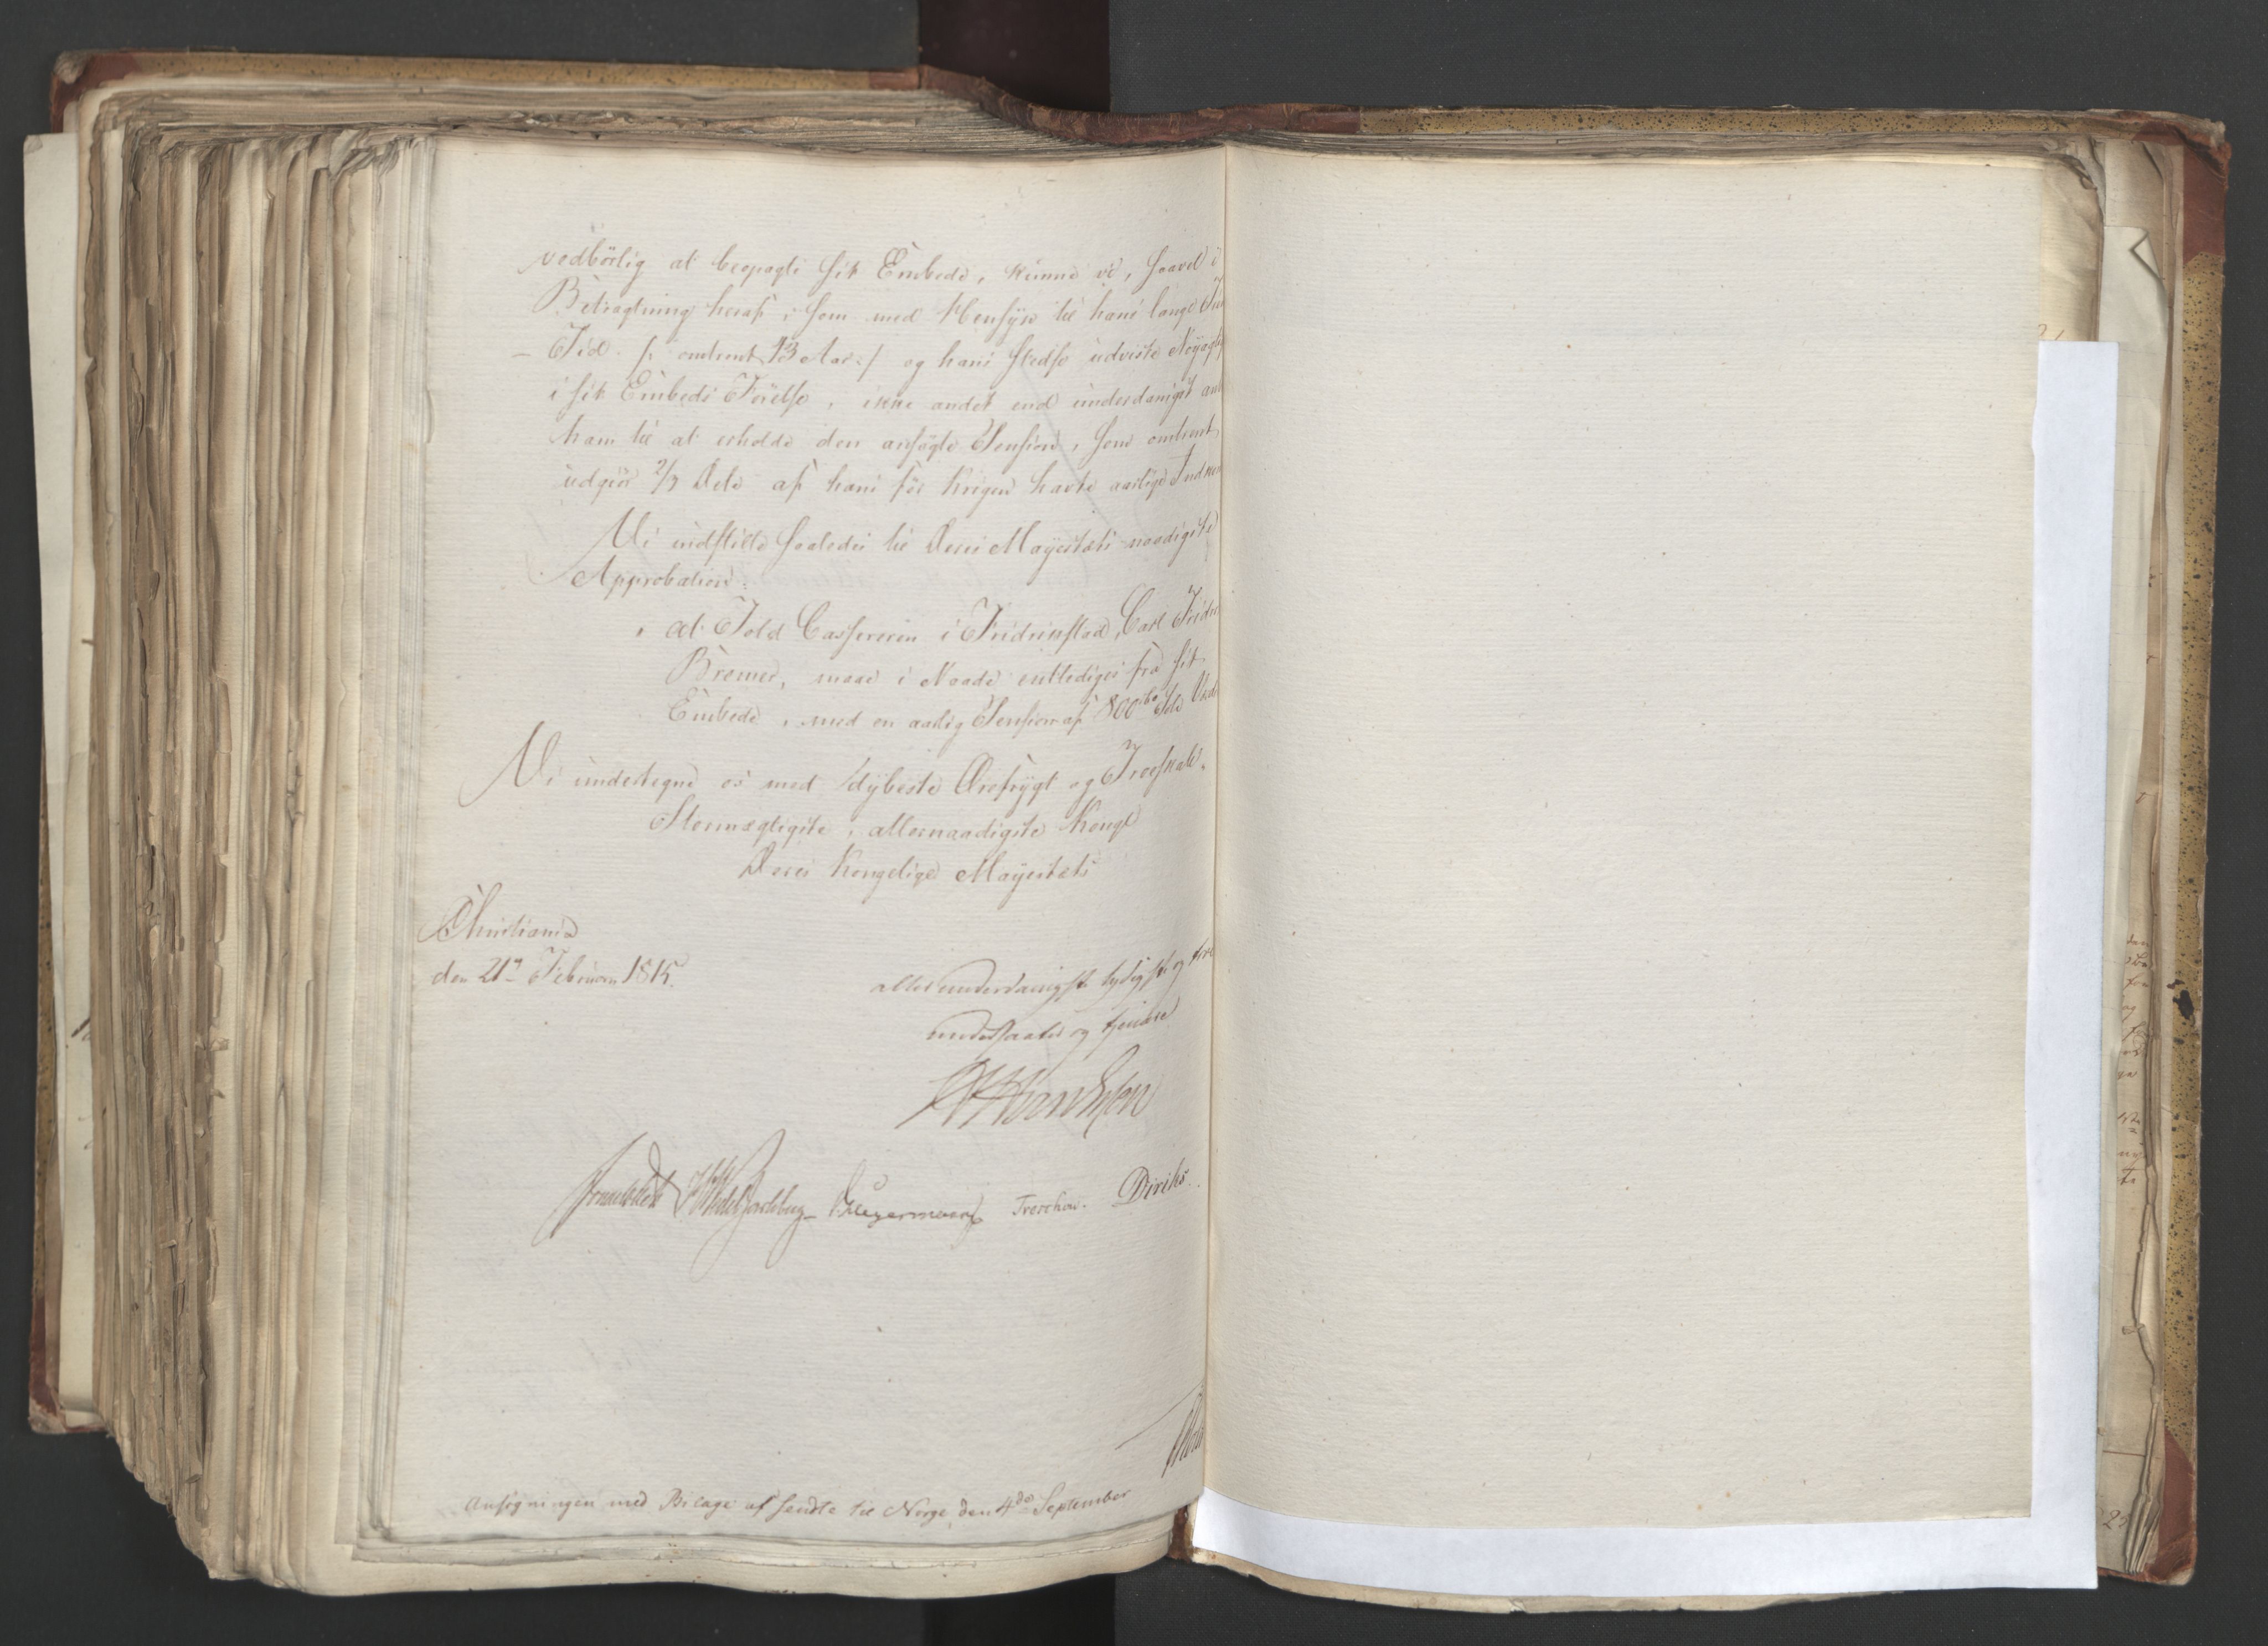 vedbörlig at besørge sit Embede, kunne vi, saavel i
Betragtning heraf, som med Hensyn til hans lange
Tid /: omtrent 43 Aar :/ og hans stedse udviste Nöyagtig
i sit Embeds Förelse, ikke andet end underdanigst an
ham til at erholde den ansøgte Pension, som omtrent
udgiör 2/3 Dele af hans för Krigen havte aarlige Indkom
Vi indstille saaledes til Deres Mayestæts naadigste
Approbation:
at Told Cassereren i Fridrikstad, Carl Fridr
Bremer, maae i Naade entlediges fra sit
Embede, med en aarlig Pension af 800 rbd
Vi undertegne os med dybeste Ærefrygt og Troeskab.
Stormægtigste, allernaadigste Konge
Deres Kongelige Mayestæts
Christiania
den 21de Februar 1815.
allerunderdanigste lydigste og troe
undersaatter og tjenere
Sommerhielm Wedel Jarlsberg Krieger Treschow. Diriks.
Ansögningen med Bilage af sendte til Norge den 4de September